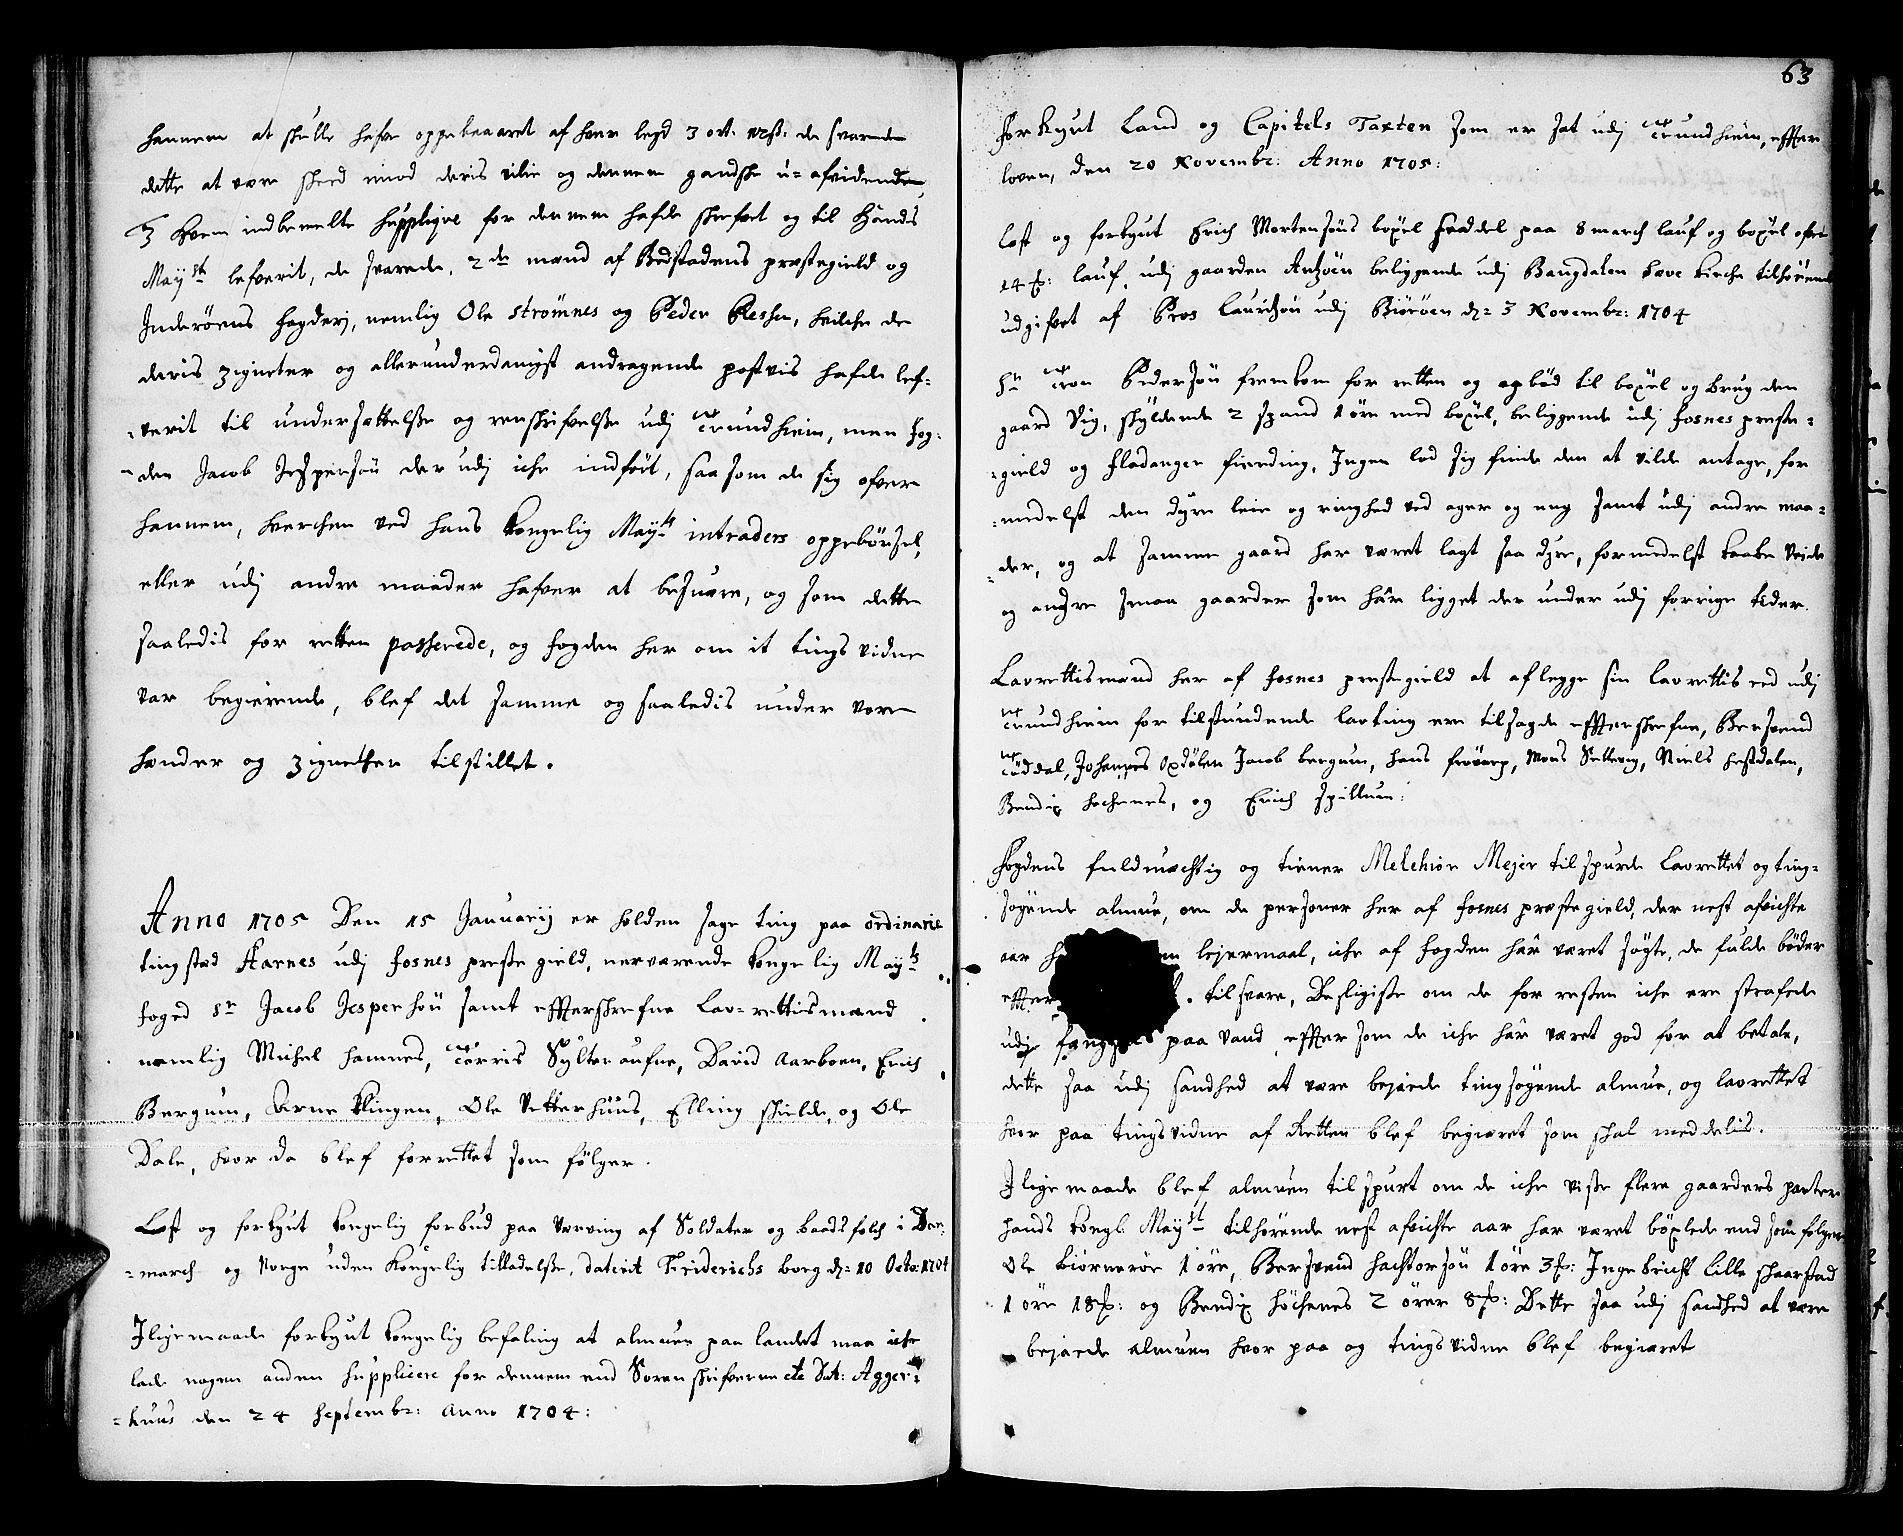 hannem at skulle hafve oppebaaret af hver legd 3 ort. 12ß: de svarede
dette at vere skeed imod deris vilie og dennem gandske u=afvidende,
3 hvem indbemelte supplique for dennem hafde skrefvet og til Hands
Mayst lefverit, de svarede, 2de mænd af Bedstadens præstegield og
Inderøens fogderj, nemlig Ole strømnes og Peder Ressen, hvilche de
deris zigneter og allerunderdanigst andragende postvis hafde lef=
=verit til undersættelße og renskrifvelße udj Trundhiem, men fog=
=den Jacob Jespersøn der udj iche indført, saa som de sig ofver
hannem, hverchen ved hans kongelig Mayts intraders oppebørsel,
eller udj andre maader hafver at besuere, og som dette
saaledis for retten passerede, og fogden her om it tings vidne
var begierende, blef det samme og saaledis under vore
hender og zignether tilstillet.
Anno 1705 Den 15 Januarij er holden sage ting paa ordinarie
tingstad Aarnes udj fosnes preste gield, nerværende kongelig Mayts
foged Sr Jacob Jespersøn samt effterskrefne Lav=rettismænd
nemlig Michel hamnes, Torris Sylteraufne, David Aarboen, Erich
Bergum, Arne Klingen, Ole Vetterhuus, Elling skielde, og Ole
Dale, hvor da blef forrettet som følger.
Lest og forkynt kongelig forbud paa verving af Soldater og baadsfolch i Dan=
=march og Norge uden kongelig tilladelße, daterit Friderichs borg d: 10 Octo: 1704
Jligemaade forkynt kongelig befaling at almuen paa landet maa iche
lade nogen anden supplicere for dennem end Sorenskrifverne etc Dat: Agger=
=huus den 24 Septembr: Anno 1704:
63
forkynt Land og Capitels Taxten som er sat udj Trundhiem, effter
loven, den 20 Novembr: Anno 1705:
Lest og forkynt Erich Mortensøns bøxel seddel paa 8 march lauf og bøxel ofver
14 : lauf, udj gaarden Anzøen beliggende udj Bangdalen kirche tilhørende
udgifvet af Pros Lauridsøn udj Biørøen d: 3 Novembr: 1704
Sr Tron Pedersøn fremkom for retten og opbød til bøxel og brug den
gaard Vig, skyldende 2 spand 1 øre med bøxel, beliggende udj fosnes preste=
=gield og fladanger fierding, Ingen lod sig finde den at vilde antage, for
=medelst den dyre leie og ringhed ved ager og eng samt udj andre maa=
=der, og at samme gaard har været lagt saa dyre, formedelst kaabe
og andre smaa gaarder som hâr ligget der under udj forrige tider.
Lavrettismænd her af fosnes prestegield at aflegge sin lavrettis eed udj
Trundhiem for tilstundende lavting ere tilsagde effterskrefne, Bersvend
Tøddal, Johannes Oxdølen Jacob bergum, hans frøvarp, Mons Settevig, Niels hestdalen,
Bendix hochenes, og Erich Spillum:
Fogdens fuldmechtig og tiener Melchior Mejer tilspurde Lavrettet og ting=
søgende almue, om de personer her af fosnes præstegield, der nest afvichte
aar lejermaal, iche af fogden hâr været søgte, de fulde bøder
effter tilsvare, Desligiste om de for resten iche ere strafede
udj paa vand, effter som de iche hâr været god for at betale,
dette saa udj sandhed at være bejaede tingsøgende almue, og lavrettet
hvor paa tingsvidne af Retten blef begieret som skal meddelis.
Jlige maade blef almuen tilspurt om de iche viste flere gaarders parter
hands kongl: Mayst tilhørende nest afvichte aar har været bøxlede end som følger
Ole biørnerøe 1 øre, Bersvend hachtorsøn 1 øre 3: Ingebricht lille skaarstad
1 øre 18: og Bendix höchenes 2 ører 8: Dette saa udj sandhed at være
bejaede almuen hvor paa og tingsvidne blef begieret